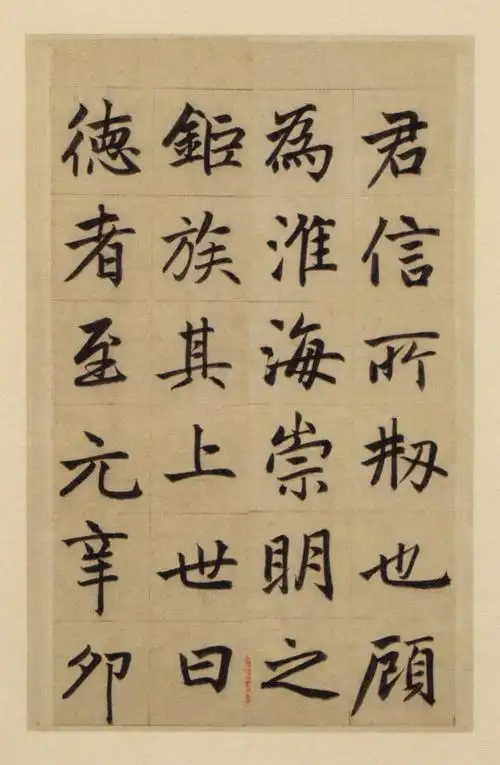 君信所剏也顧
為淮海崇明之
鉅族其上世曰
徳者至元辛卯